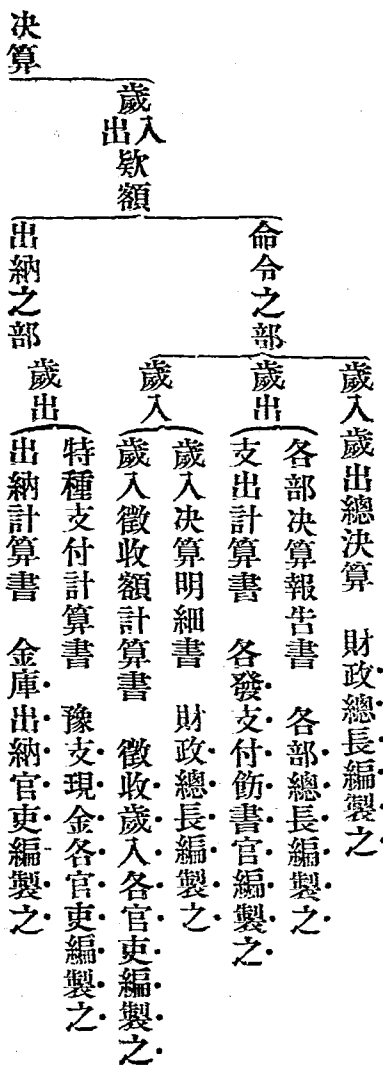 决算
歲入出欵額
命令之部
歲入歲出總決算　財政總長編製之
歲出
各部決算報告書　各部總長編製之
支出計算書　各發支付飭書官編製之
歲入
歲入决算明細書　財政總長編製之
歲入徵收額計算書　徵收歲入各官吏編製之
出納之部
歲出
特種支付計算書　豫支現金各官吏編製之
出納計算書　金庫出納官吏編製之